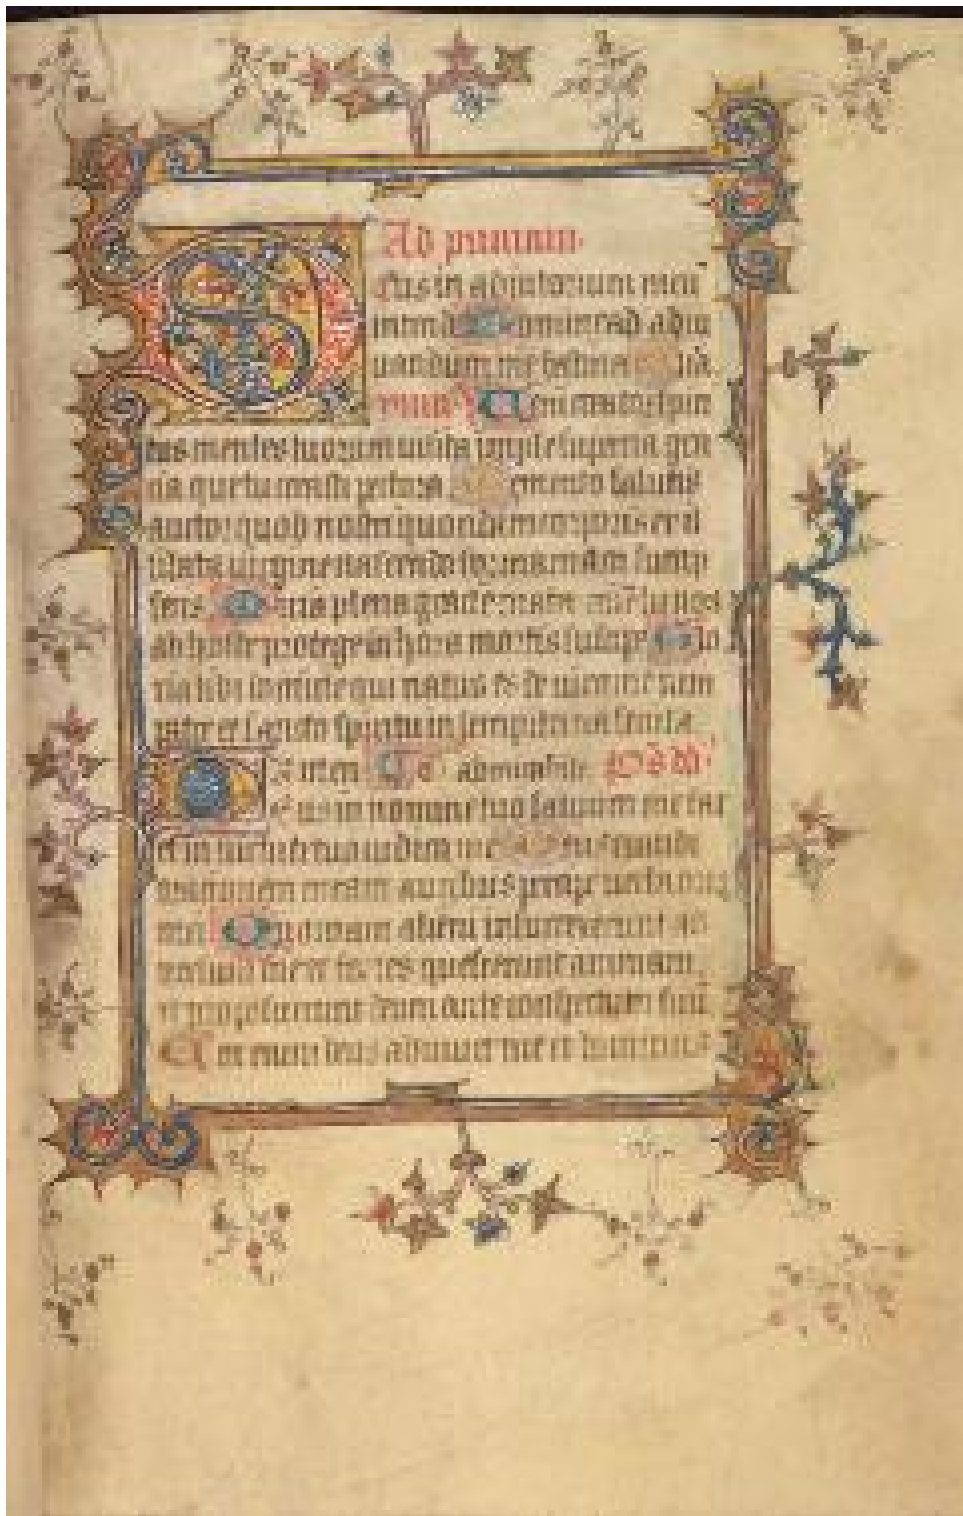 Ad primam
Deus in adiutorium meū
intende Domine ad adiu
uandum me festina
Veni creator spiri
tus mentes tuorum uisita imple superna gra
cia que tu creasti pectora Memento salutis
auctor quod nostri quondam corporis ex il
libata uirgine nascendo formam sump
seris Maria plena gracie mater tu nos
ab hoste protege in hora mortis suscipe Glo
ria tibi domine qui natus es de uirgine cum
patre et sancto spiritu in sempiterna secula
Amen
Deus in nomine tuo saluum me fac
et in uirtute tua iudica me Deus exaudi
meam auribus percipe uerba oris
mei Quoniam alieni insurrexerunt ad
uersum me et fortes quesierunt animam
et proposuerunt deum ante conspectum suū
Ecce enim deus adiuuat me et dominus